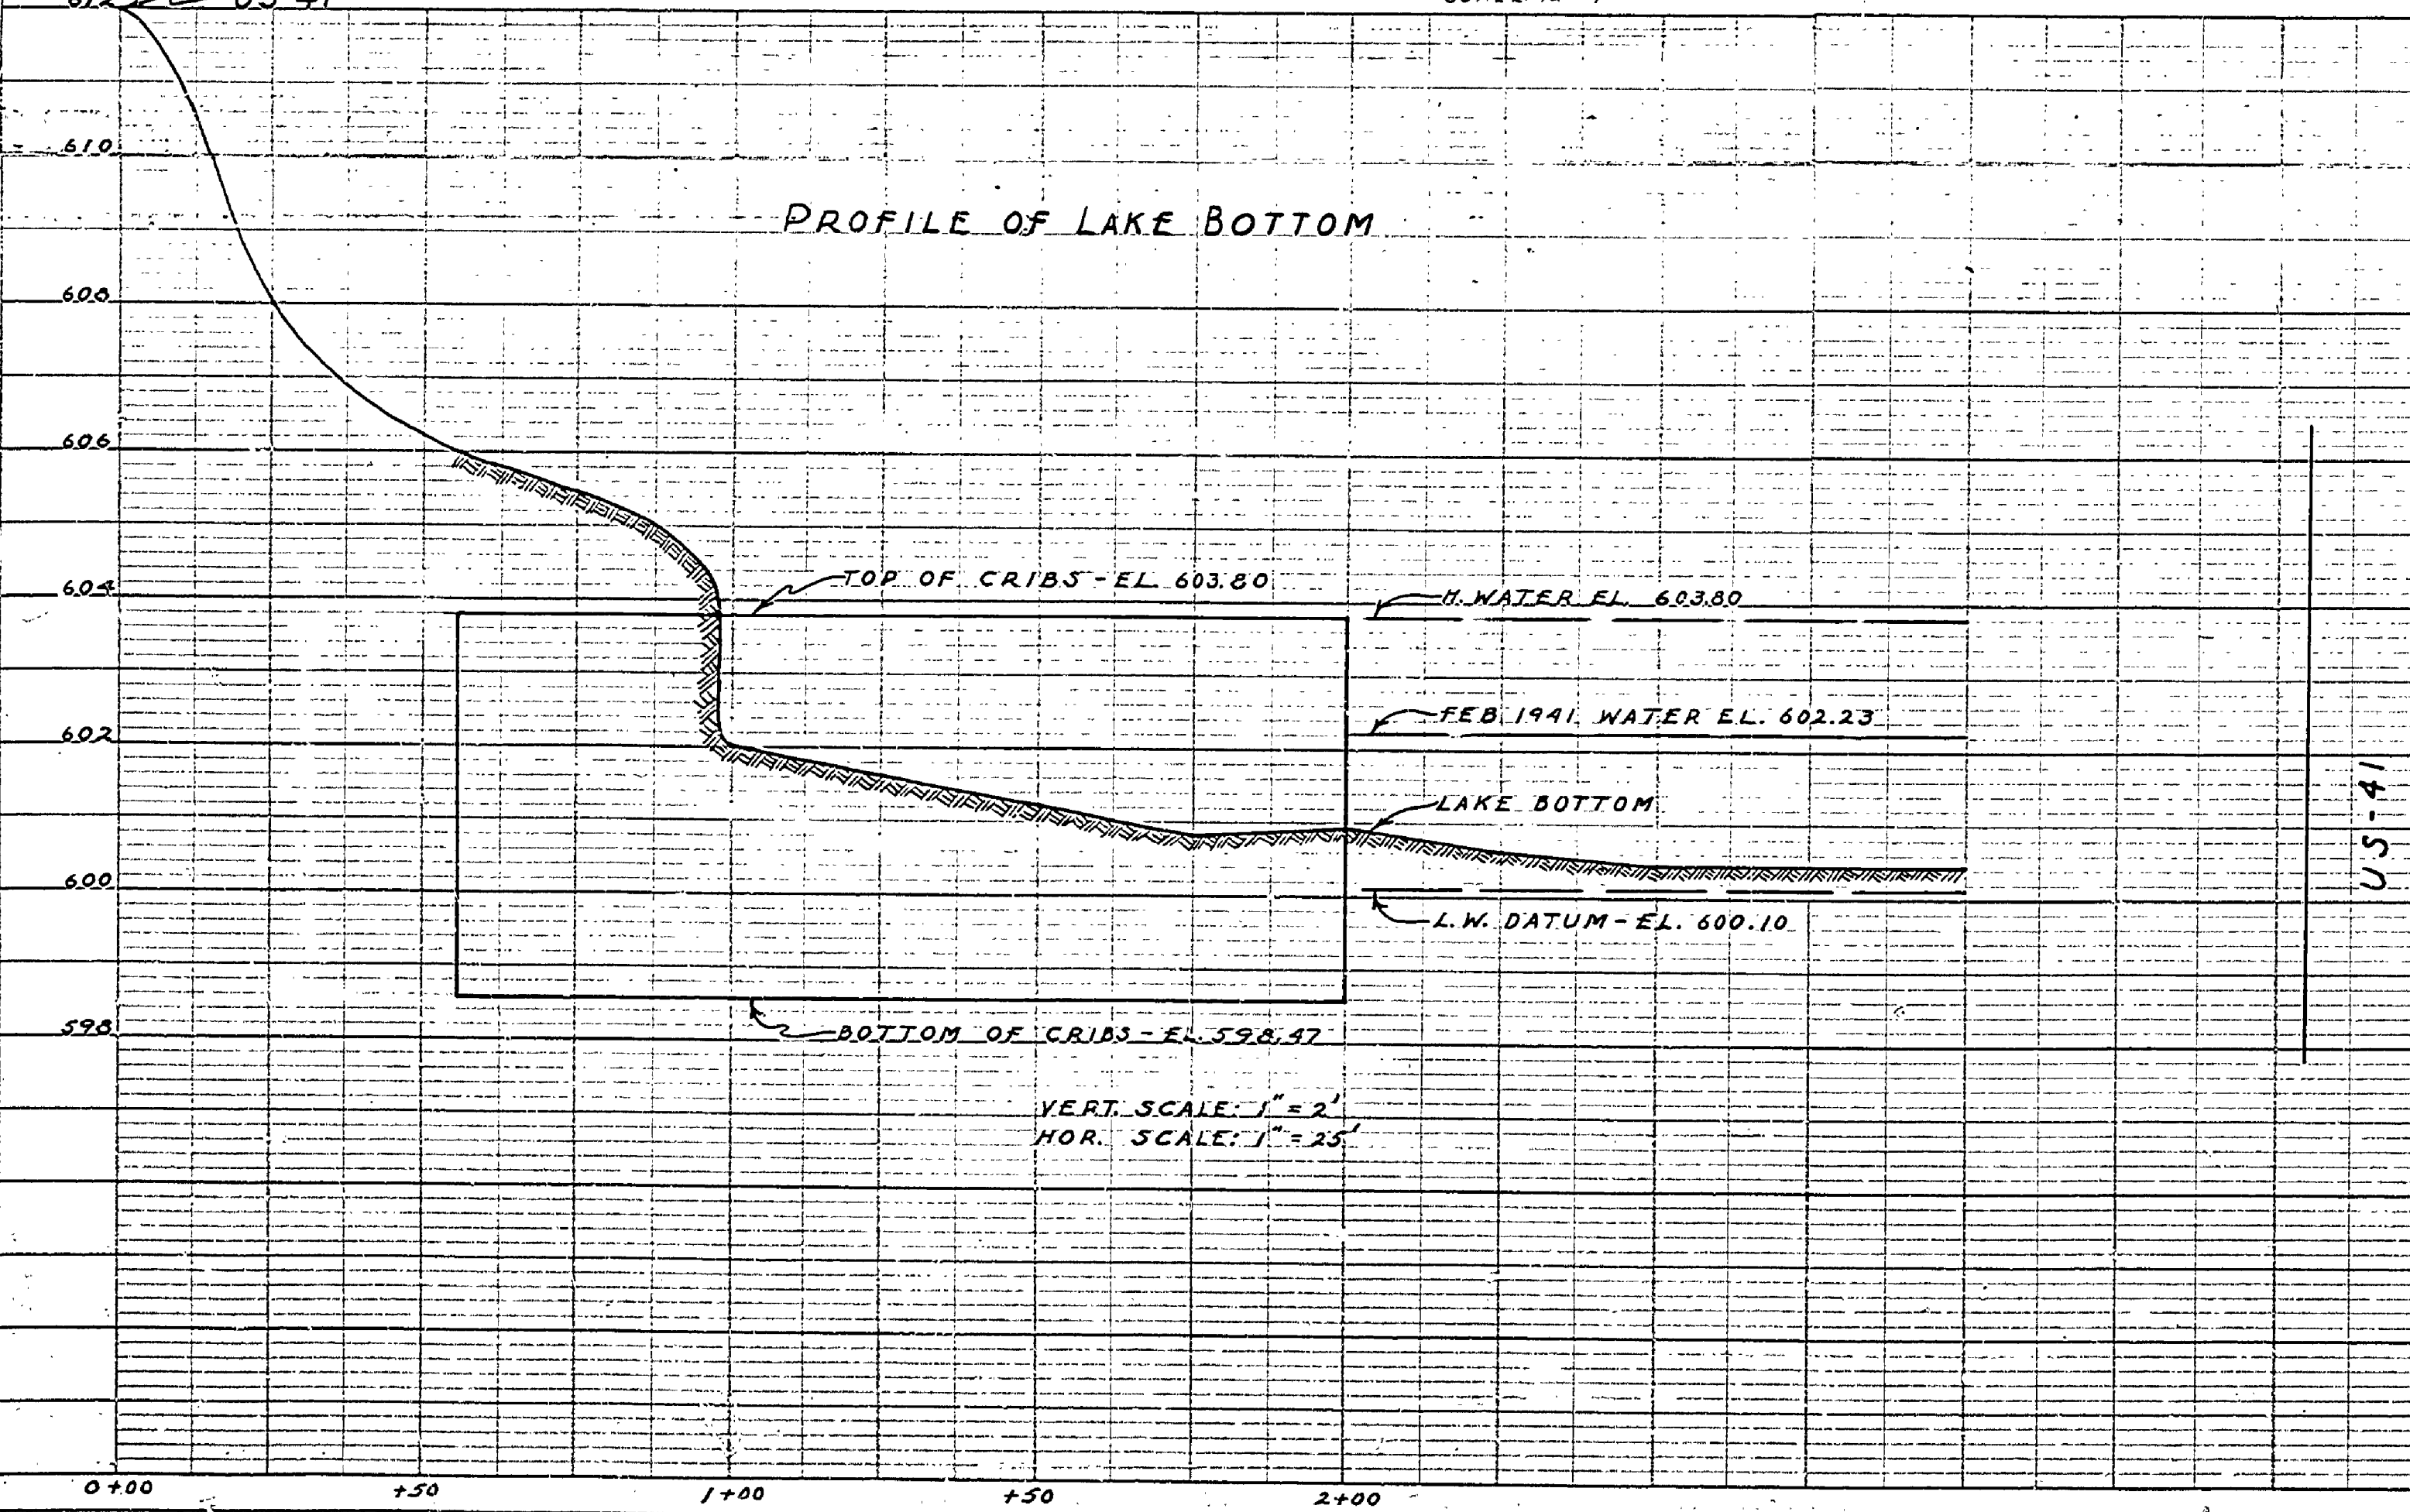 612
US-41
610
PROFILE OF LAKE BOTTOM
608
606
604
TOP OF CRIBS - EL. 603.80
H. WATER EL. 603.80
602
FEB. 1941 WATER EL. 602.23
LAKE BOTTOM
US-41
600
L.W. DATUM - EL. 600.10
598
BOTTOM OF CRIBS - EL. 598.47
VERT. SCALE: 1" = 2'
HOR. SCALE: 1" = 25'
0+00
+50
1+00
+50
2+00